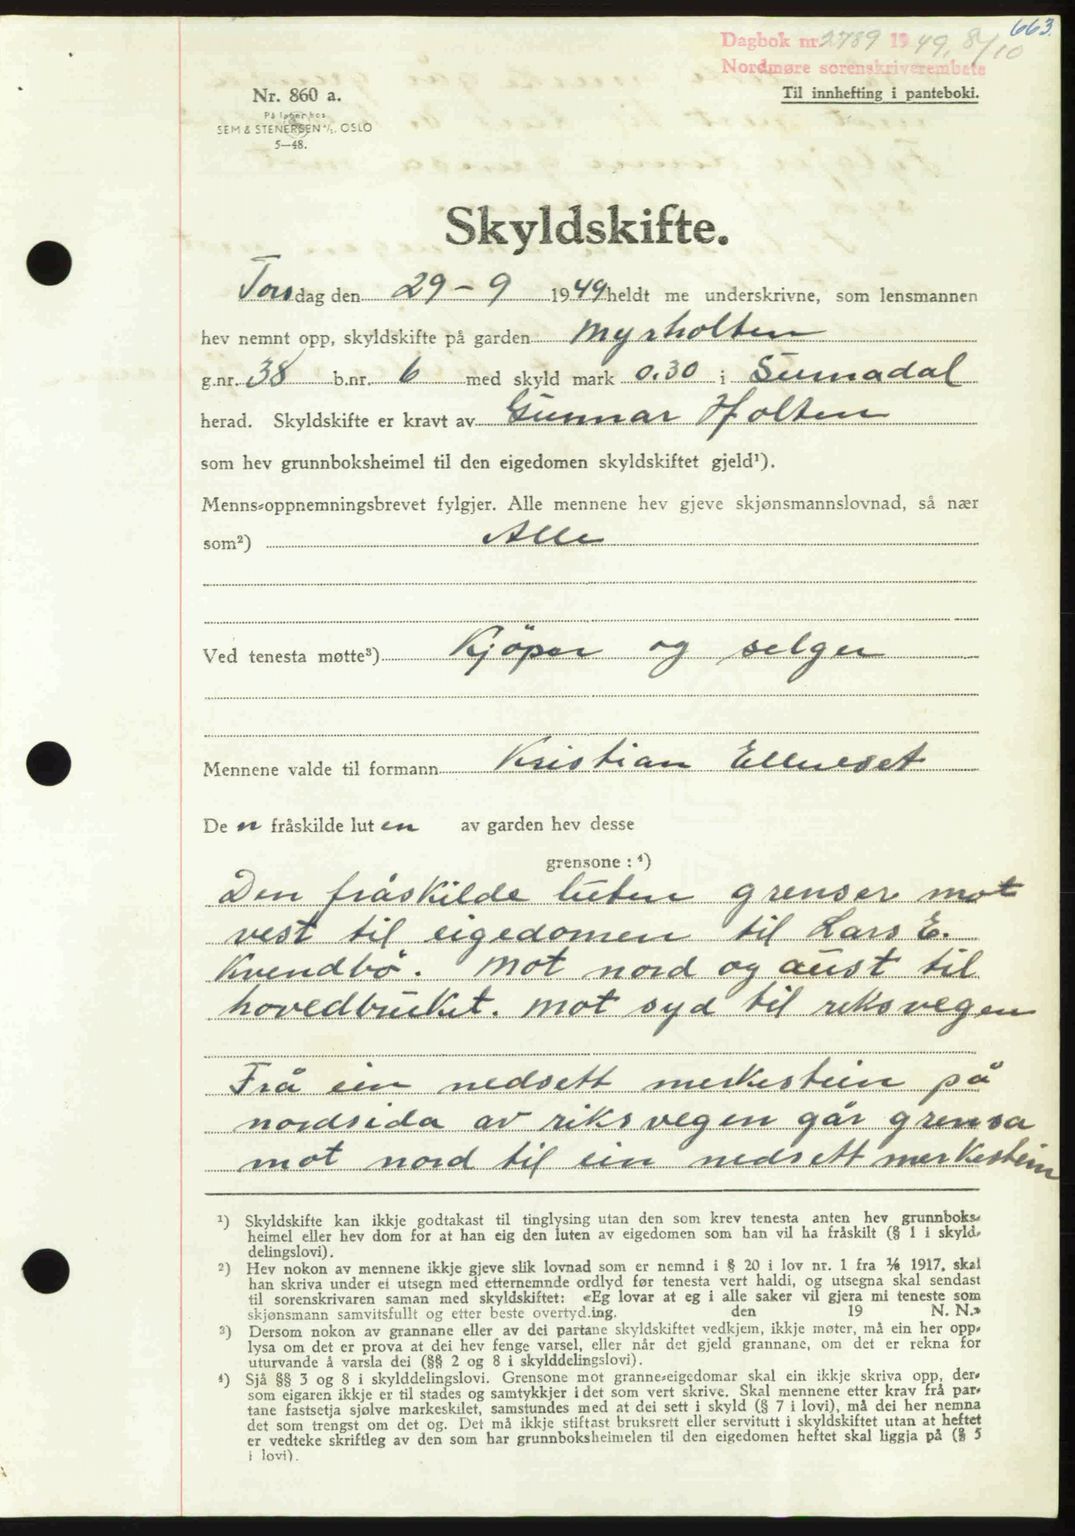 663.
Dagbok nr. 2789 1949, 8/10
Nordmøre sorenskriverembete
Til innhefting i panteboki.
Nr. 860 a.
På lager hos
SEM & STENERSEN A/S. OSLO
5—48.
Skyldskifte.
Torsdag den 29-9 1949 heldt me underskrivne, som lensmannen
hev nemnt opp, skyldskifte på garden Myrholten
g.nr. 38 b.nr. 6 med skyld mark 0.30 i Surnadal
herad. Skyldskifte er kravt av Gunnar Holten
som hev grunnboksheimel til den eigedomen skyldskiftet gjeld¹).
Menns-oppnemningsbrevet fylgjer. Alle mennene hev gjeve skjønsmannslovnad, så nær
som²) Alle
Ved tenesta møtte³) Kjöper og selger
Mennene valde til formann Kristian Ellevset
De n fråskilde lut en av garden hev desse
grensone : ⁴)
Den fråskilde luten grenser mot
vest til eigedomen til Lars E.
Kvendbö. Mot nord og aust til
hovedbruket. Mot syd til riksvegen
Frå ein nedsett merkestein på
nordsida av riksvegen går grensa
mot nord til ein nedsett merkestein
¹) Skyldskifte kan ikkje godtakast til tinglysing utan den som krev tenesta anten hev grunnboks-
heimel eller hev dom for at han eig den luten av eigedomen som han vil ha fråskilt (§ 1 i skyld-
delingslovi).
²) Hev nokon av mennene ikkje gjeve slik lovnad som er nemnd i § 20 i lov nr. 1 fra 1/6 1917, skal
han skriva under ei utsegn med etternemnde ordlyd før tenesta vert haldi, og utsegna skal sendast
til sorenskrivaren saman med skyldskiftet: «Eg lovar at eg i alle saker vil gjera mi teneste som
skjønsmann samvitsfullt og etter beste overtyding. den 19 N. N.»
³) Dersom nokon av grannane eller av dei partane skyldskiftet vedkjem, ikkje møter, må ein her opp-
lysa om det er prova at dei hev fenge varsel, eller når det gjeld grannane, om det er rekna for
uturvande å varsla dei (§§ 2 og 8 i skylddelingslovi).
⁴) Sjå §§ 3 og 8 i skylddelingslovi. Grensone mot granne-eigedomar skal ein ikkje skriva opp, der-
som eigaren ikkje er til stades og samtykkjer i det som vert skrive. Skal mennene etter krav frå par-
tane fastsetja sjølve markeskilet, samstundes med at dei sett i skyld (§ 7 i lovi), må dei her nemna
det som trengst om det og. Det må ikkje stiftast bruksrett eller servitutt i skyldskiftet utan at heftet
er vedteke skriftleg av den som har grunnboksheimelen til den eigedomen heftet skal liggja på (§ 5
i lovi).